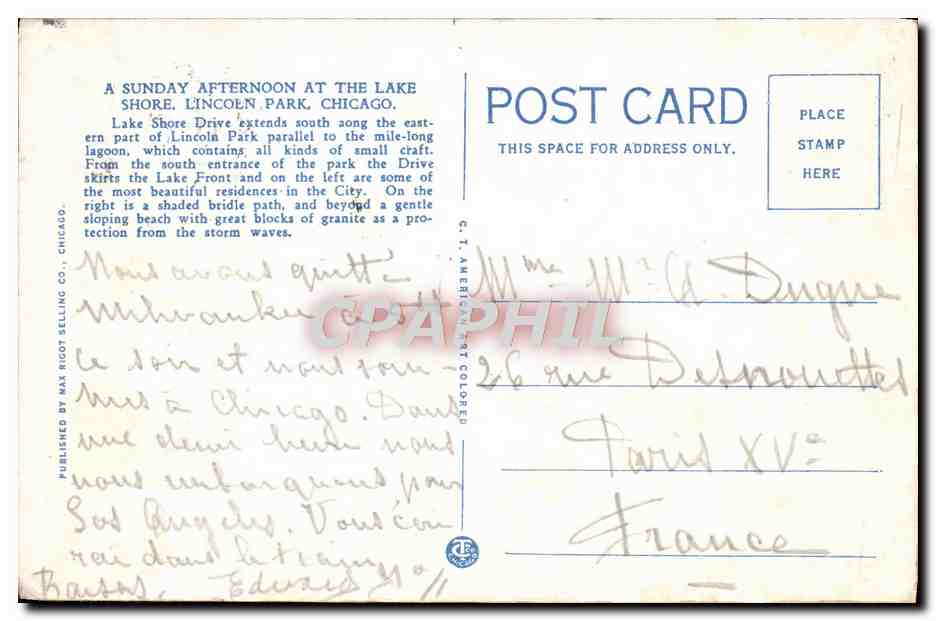 A SUNDAY AFTERNOON AT THE LAKE
SHORE, LINCOLN PARK, CHICAGO.
Lake Shore Drive extends south aong the east-
ern part of Lincoln Park parallel to the mile-long
lagoon, which contains all kinds of small craft.
From the south entrance of the park the Drive
skirts the Lake Front and on the left are some of
the most beautiful residences in the City. On the
right is a shaded bridle path, and beyond a gentle
sloping beach with great blocks of granite as a pro-
tection from the storm waves.
PUBLISHED BY MAX RIGOT SELLING CO., CHICAGO.
Nous avons quitté
Milwaukee à 5h
ce soir et nous som-
mes à Chicago. Dans
une demi heure nous
nous embarquons pour
Los Angeles. Vous écri
rai dans le train
Baisers. Edouard
C. T. AMERICAN ART COLORED
POST CARD
THIS SPACE FOR ADDRESS ONLY.
PLACE
STAMP
HERE
Mme Mr Duque
26 rue Desnouettes
Paris XVe
France
CPAPHIL
CT CO
CHICAGO